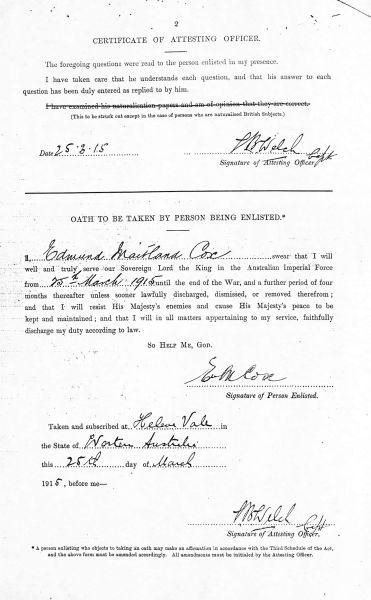 2
CERTIFICATE OF ATTESTING OFFICER.
The foregoing questions were read to the person enlisted in my presence.
I have taken care that he understands each question, and that his answer to each
question has been duly entered as replied to by him.
I have examined his naturalization papers and am of opinion that they are correct.
(This to be struck out except in the case of persons who are naturalized British Subjects.)
Date 25·3·15
Welch Capt
Signature of Attesting Officer.
OATH TO BE TAKEN BY PERSON BEING ENLISTED.*
I, Edmund Maitland Cox swear that I will
well and truly serve our Sovereign Lord the King in the Australian Imperial Force
from 25th March 1915 until the end of the War, and a further period of four
months thereafter unless sooner lawfully discharged, dismissed, or removed therefrom; and
that I will resist His Majesty's enemies and cause His Majesty's peace to be
kept and maintained; and that I will in all matters appertaining to my service, faithfully
discharge my duty according to law.
SO HELP ME, GOD.
E M Cox
Signature of Person Enlisted.
Taken and subscribed at Helena Vale in
the State of Western Australia
this 25th day of March
1915, before me—
Welch Capt
Signature of Attesting Officer.
* A person enlisting who objects to taking an oath may make an affirmation in accordance with the Third Schedule of the Act,
and the above form must be amended accordingly. All amendments must be initialed by the Attesting Officer.